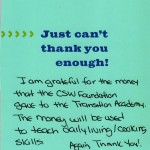 Just can't
thank you
enough!
I am grateful for the money
that the CSW Foundation
gave to the Transition Academy.
The money will be used
to teach daily living/cooking
skills.
Again, Thank You!